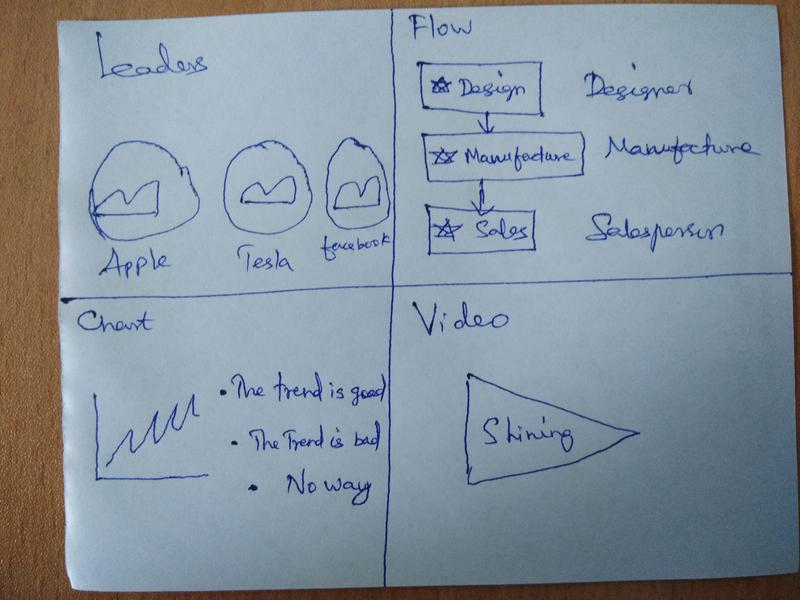 Leaders
Apple
Tesla
facebook
Flow
Design
Designer
Manufacture
Manufacture
Sales
Salesperson
Chart
• The trend is good
• The Trend is bad
• No way
Video
Shining